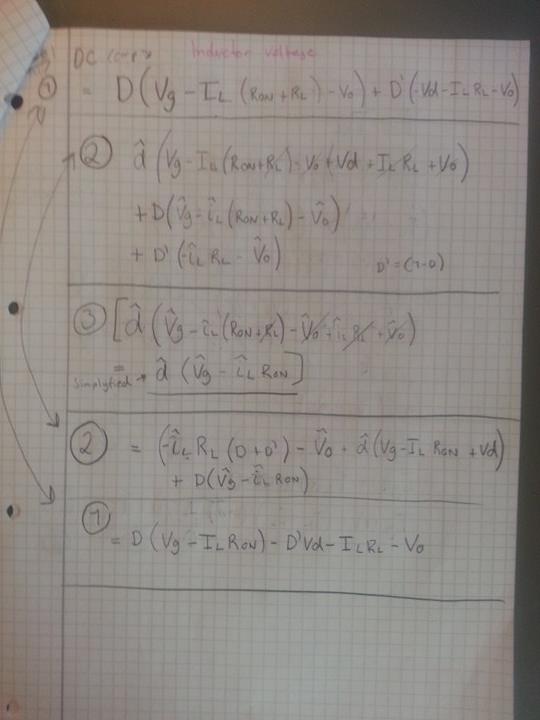 DC Inductor voltage
① = D(Vg - IL (RON + RL) - Vo) + D'(-Vd - IL RL - Vo)
② d̂ (Vg - IL (RON + RL) - Vo + Vd + IL RL + Vo)
+ D(V̂g - îL (RON + RL) - V̂o)
+ D' (-îL RL - V̂o)
D' = (1-D)
③ [d̂ (V̂g - îL (RON + RL) - V̂o + îL RL + V̂o)
= simplyfied → d̂ (V̂g - îL RON]
② = (-îL RL (D + D') - V̂o + d̂ (Vg - IL RON + Vd)
+ D(V̂g - îL RON)
① = D (Vg - IL RON) - D'Vd - IL RL - Vo